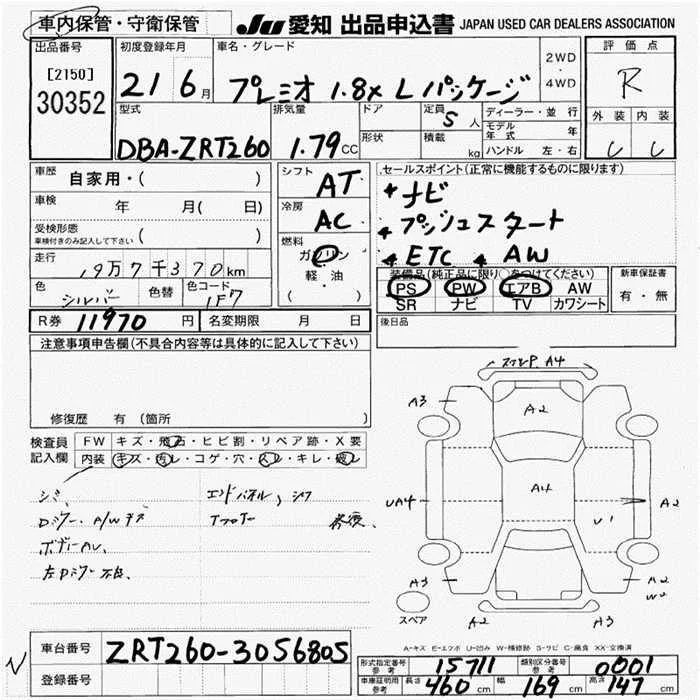 車内保管・守衛保管
JU 愛知 出品申込書 JAPAN USED CAR DEALERS ASSOCIATION
出品番号
[2150]
30352
初度登録年月
21 6月
車名・グレード
プレミオ 1.8X Lパッケージ
2WD
・
4WD
評価点
R
外装 内装
型式
DBA-ZRT260
排気量
1.79CC
ドア
形状
定員 5人
積載 kg
ディーラー・並行
モデル年式 年
ハンドル 左・右
車歴
自家用・( )
車検 年 月( 日)
受検形態
車検付きのみ記入して下さい ( )
走行
19万7千370km
色 シルバー
色替
色コード 1F7
シフト AT
冷房 AC
燃料
ガソリン
軽・油
・( )
セールスポイント(正常に機能するものに限ります)
* ナビ
* プッシュスタート
* ETC * AW
装備品(純正品に限り○をつけてください)
PS PW エアB AW
SR ナビ TV カワシート
新車保証書
有・無
後日品
R券 11970 円
名変期限 月 日
注意事項申告欄(不具合内容等は具体的に記入して下さい)
修復歴 有(箇所
検査員
記入欄
FW キズ・飛石・ヒビ割・リペア跡・X要
内装 キズ・汚レ・コゲ・穴・スレ・キレ・破レ
シミ
Dミラー、A/Wキズ
左Dミラー不良、
エンドパネル、
A4
A3
A2
A4
UA4
A2
U1
A3
A2
W2
スペア
A2
A3
A-キズ E-エクボ U-凹み W-補修跡 S-サビ C-腐食 XX-交換済
車台番号 ZRT260-3056805
登録番号
形式指定番号
参考
15711
類別区分番号
参考
0001
車庫証明用
参考
長さ 460 cm 幅 169 cm 高さ 147 cm